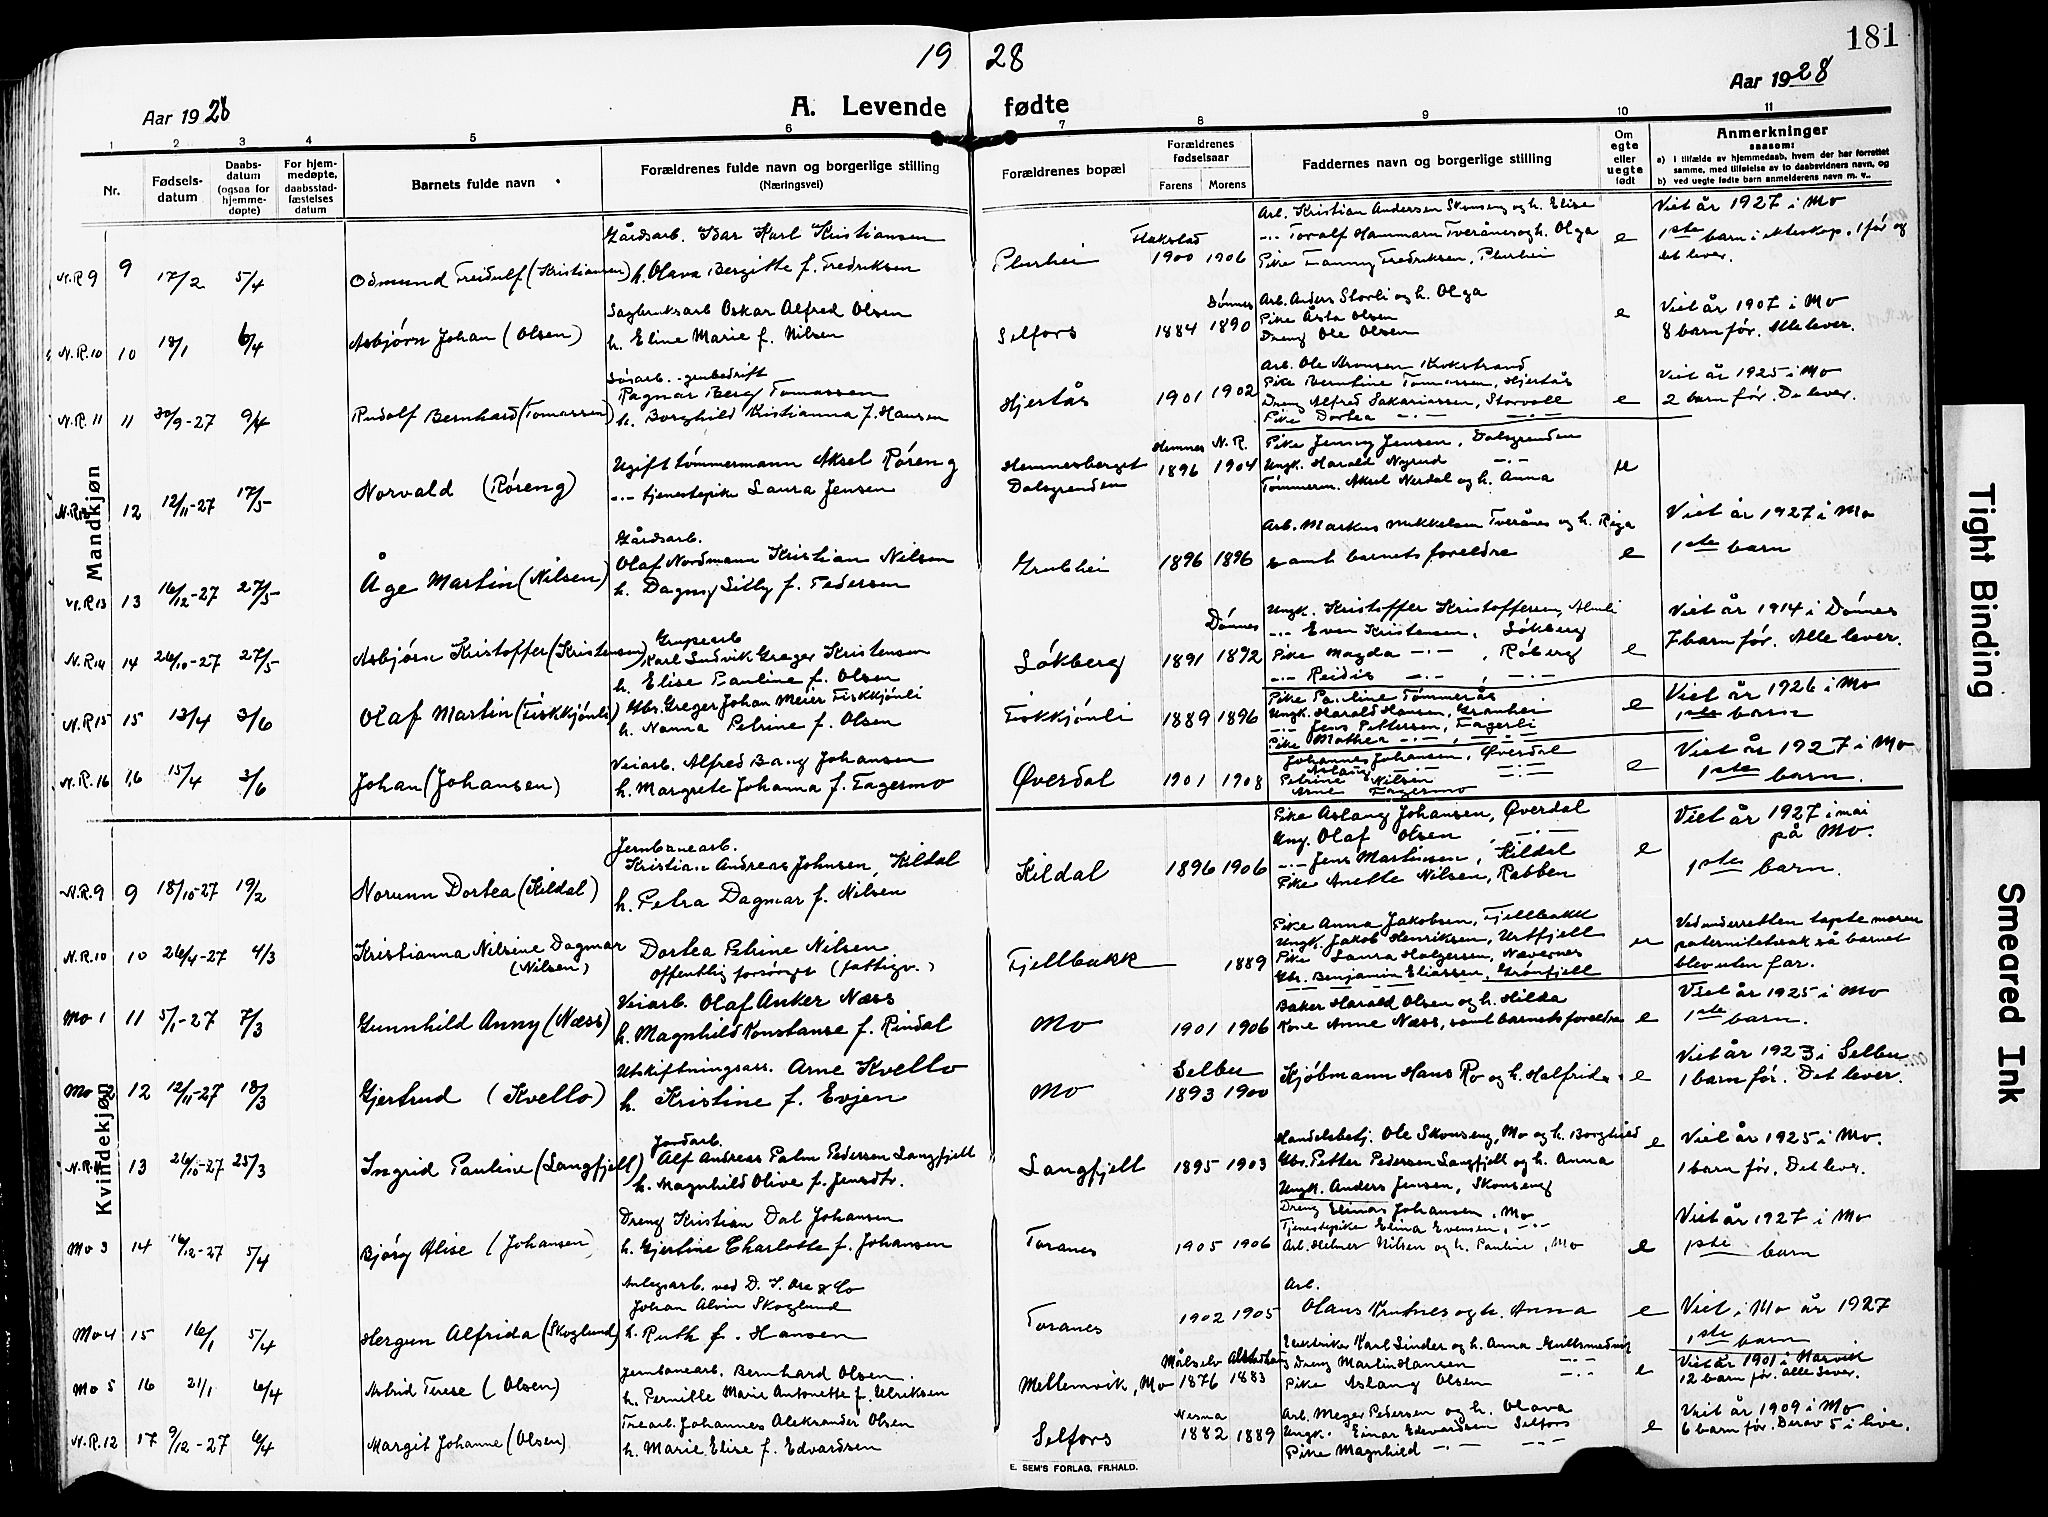 181
19 28
Aar 1928
A. Levende fødte
Aar 1928
1 2 3 4 5 6 7 8 9 10 11
Nr.
Fødsels-datum
Daabs-datum (ogsaa for hjemme-døpte)
For hjem-medøpte, daabsstad-fæstelses datum
Barnets fulde navn
Forældrenes fulde navn og borgerlige stilling (Næringsvei)
Forældrenes bopæl
Forældrenes fødselsaar
Farens Morens
Faddernes navn og borgerlige stilling
Om egte eller uegte født
Anmerkninger
saasom:
a) i tilfælde av hjemmedaab, hvem der har forrettet samme, med tilføielse av to daabsvidners navn, og
b) ved uegte fødte barn anmelderens navn m. v.
Mandkjøn
N.R 9 9 17/2 5/4 Odmund Freidulf (Kristiansen)
Gårdsarb. Karl Kristiansen
h. Olava Bergitte f. Fredriksen
Plurhei
Flakstad
1900 1906
Arb. Kristian Andersen Skonseng og h. Elise
-"- Toralf Hammann Tverånes og h. Olga
Pike Fanny Fredriksen, Plurhei
e
Viet år 1927 i Mo
1ste barn i ekteskap. 1 før og
det lever.
N.R. 10 10 18/1 6/4 Asbjørn Johan (Olsen)
Sagbruksarb Oskar Alfred Olsen
h. Eline Marie f. Nilsen
Selfors
Dønnes
1884 1890
Arb. Anders Storli og h. Olga
Pike Åsta Olsen
Dreng Ole Olsen
e
Viet år 1907 i Mo
8 barn før. Alle lever.
N.R. 11 11 30/9-27 9/4 Rudolf Bernhard (Tomassen)
Ragnar Berg Tomassen
h. Borghild Kristianna f. Hansen
Hjertås
1901 1902
Arb. Ole Aronsen
Pike Berntine Tomassen, Hjertås
Dreng Alfred Sakariassen, Storvoll
Pike Dortea -"- -"-
e
Viet år 1925 i Mo
2 barn før. De lever.
12 12/11-27 17/5 Norvald (Røreng)
Ugift tømmermann Aksel Røreng
-"- tjenestepike Laura Jensen
Hemnesberget
Dalsgrenden
Hemnes N. R.
1896 1904
Pike Jenny Jensen, Dalsgrenden
Ungk. Harald Nyrud -"-
Tømmerm. Aksel Nerdal og h. Anna
u
N.R 13 13 16/12-27 27/5 Åge Martin (Nilsen)
Gårdsarb.
Olaf Nordmann Kristian Nilsen
h. Dagny Silly f. Pedersen
Grubhei
1896 1896
Arb. Markus Mikkelsen Tverånes og h.
samt barnets foreldre
e
Viet år 1927 i Mo
1ste barn
N.R 14 14 26/10-27 27/5 Asbjørn Kristoffer (Kristensen)
Grubearb
Karl Ludvik Greger Kristensen
h. Elise Pauline f. Olsen
Løkberg
Dønnes
1891 1892
Ungk. Kristoffer Kristoffersen, Almli
-"- Even Kristensen, Løkberg
Pike Magda -"-, Røberg
-"- Reidis -"-, -"-
e
Viet år 1914 i Dønnes
7 barn før. Alle lever.
N.R 15 15 13/4 3/6 Olaf Martin (Fiskkjønli)
Gbr. Greger Johan Meier Fiskkjønli
h. Nanna Petrine f. Olsen
Fiskkjønli
1889 1896
Pike Pauline Tømmerås
Ungk. Harald Hansen, Granhei
-"- Jens Pettersen, Fagerli
Pike Mathea -"-, -"-
e
Viet år 1926 i Mo
1ste barn
N.R. 16 16 15/4 3/6 Johan (Johansen)
Veiarb. Alfred Bang Johansen
h. Margrete Johanna f. Fagermo
Øverdal
1901 1908
Johannes Johansen, Øverdal
Aslaug -"- -"-
Petrine Nilsen -"-
Arne Fagermo
e
Viet år 1927 i Mo
1ste barn.
Kvindekjøn
N.R. 9 9 18/10-27 19/2 Norunn Dortea (Kildal)
Jernbanearb.
Kristian Andreas Johnsen, Kildal
h. Petra Dagmar f. Nilsen
Kildal
1896 1906
Pike Aslaug Johansen, Øverdal
Ung. Olaf Olsen, -"-
-"- Jens Martinsen, Kildal
Pike Anette Nilsen, Rabben
e
Viet år 1927 i mai
på Mo.
1ste barn.
N.R. 10 10 26/4-27 4/3 Kristianna Nilsine Dagmar (Nilsen)
Dortea Petrine Nilsen
offentlig forsørget (fattigv.)
Fjellbakk
1889
Pike Anna Jakobsen, Fjellbakk
Ungk. Jakob Henriksen, Urtfjell
Pike Laura Holgersen, Nævernes
Gbr. Benjamin Eliassen, Grønfjell
u
Ved underretten tapte moren
paternitetssak så barnet
blev uten far.
Mo 1 11 5/1-27 7/3 Gunnhild Anny (Næss)
Veiarb. Olaf Anker Næss
h. Magnhild Konstanse f. Rindal
Mo
1901 1906
Baker Harald Olsen og h. Hilda
Kone Anne Næss, samt barnets foreldre
e
Viet år 1925 i Mo
1ste barn.
Mo 2 12 12/11-27 18/3 Gjertrud (Kvello)
Utskiftningsass. Arne Kvello
h. Kristine f. Evjen
Mo
Selbu
1893 1900
Kjøbmann Hans Ro og h. Halfrida
e
Viet år 1923 i Selbu
1 barn før. Det lever.
N.R. 11 13 26/10-27 25/3 Ingrid Pauline (Langfjell)
Jordarb.
Alf Andreas Palm Pedersen Langfjell
h. Magnhild Olive f. Jensdtr.
Langfjell
1895 1903
Handelsbetj. Ole Skonseng, Mo og h. Borghild
Gbr. Petter Pedersen Langfjell og h. Anna
Ungk. Anders Jensen, Skonseng
e
Viet år 1925 i Mo.
1 barn før. Det lever.
Mo 3 14 16/12-27 5/4 Bjørg Elise (Johansen)
Dreng Kristian Dal Johansen
h. Gjertine Charlotte f. Johansen
Toranes
1905 1906
Dreng Elinas Johansen, Mo
Tjenestepike Elina Evensen, -"-
Arb. Helmer Nilsen og h. Pauline, Mo
e
Viet år 1927 i Mo
1ste barn
Mo 4 15 16/1 5/4 Hergun Alfrida (Skoglund)
Anlegsarb. ved D. S. Ore & Co
Johan Alvin Skoglund
h. Ruth f. Hansen
Toranes
1902 1905
Arb.
Olaus Krutnes og h. Anna
e
Viet i Mo år 1927
1ste barn
Mo 5 16 21/1 6/4 Astrid Terese (Olsen)
Jernbanearb. Bernhard Olsen.
h. Pernille Marie Antonette f. Ulriksen
Mellemvik, Mo
Målselv Alstadhaug
1876 1883
Elektriker Karl Linder og h. Anna Gullsmedvik
Dreng Martin Hansen -"-
Pike Aslaug Olsen
e
Viet år 1901 i Narvik
12 barn før. Alle lever.
N.R. 12 17 9/12-27 6/4 Margit Johanne (Olsen)
Trearb. Johannes Aleksander Olsen
h. Marie Elise f. Edvardsen
Selfors
Nesna
1882 1889
Arb. Meyer Pedersen og h. Olava
Ungk. Einar Edvardsen Selfors
Pike Magnhild -"- -"-
e
Viet år 1909 i Mo
6 barn før. Derav 5 i live.
E. SEM'S FORLAG, FR.HALD.
Tight Binding
Smeared Ink